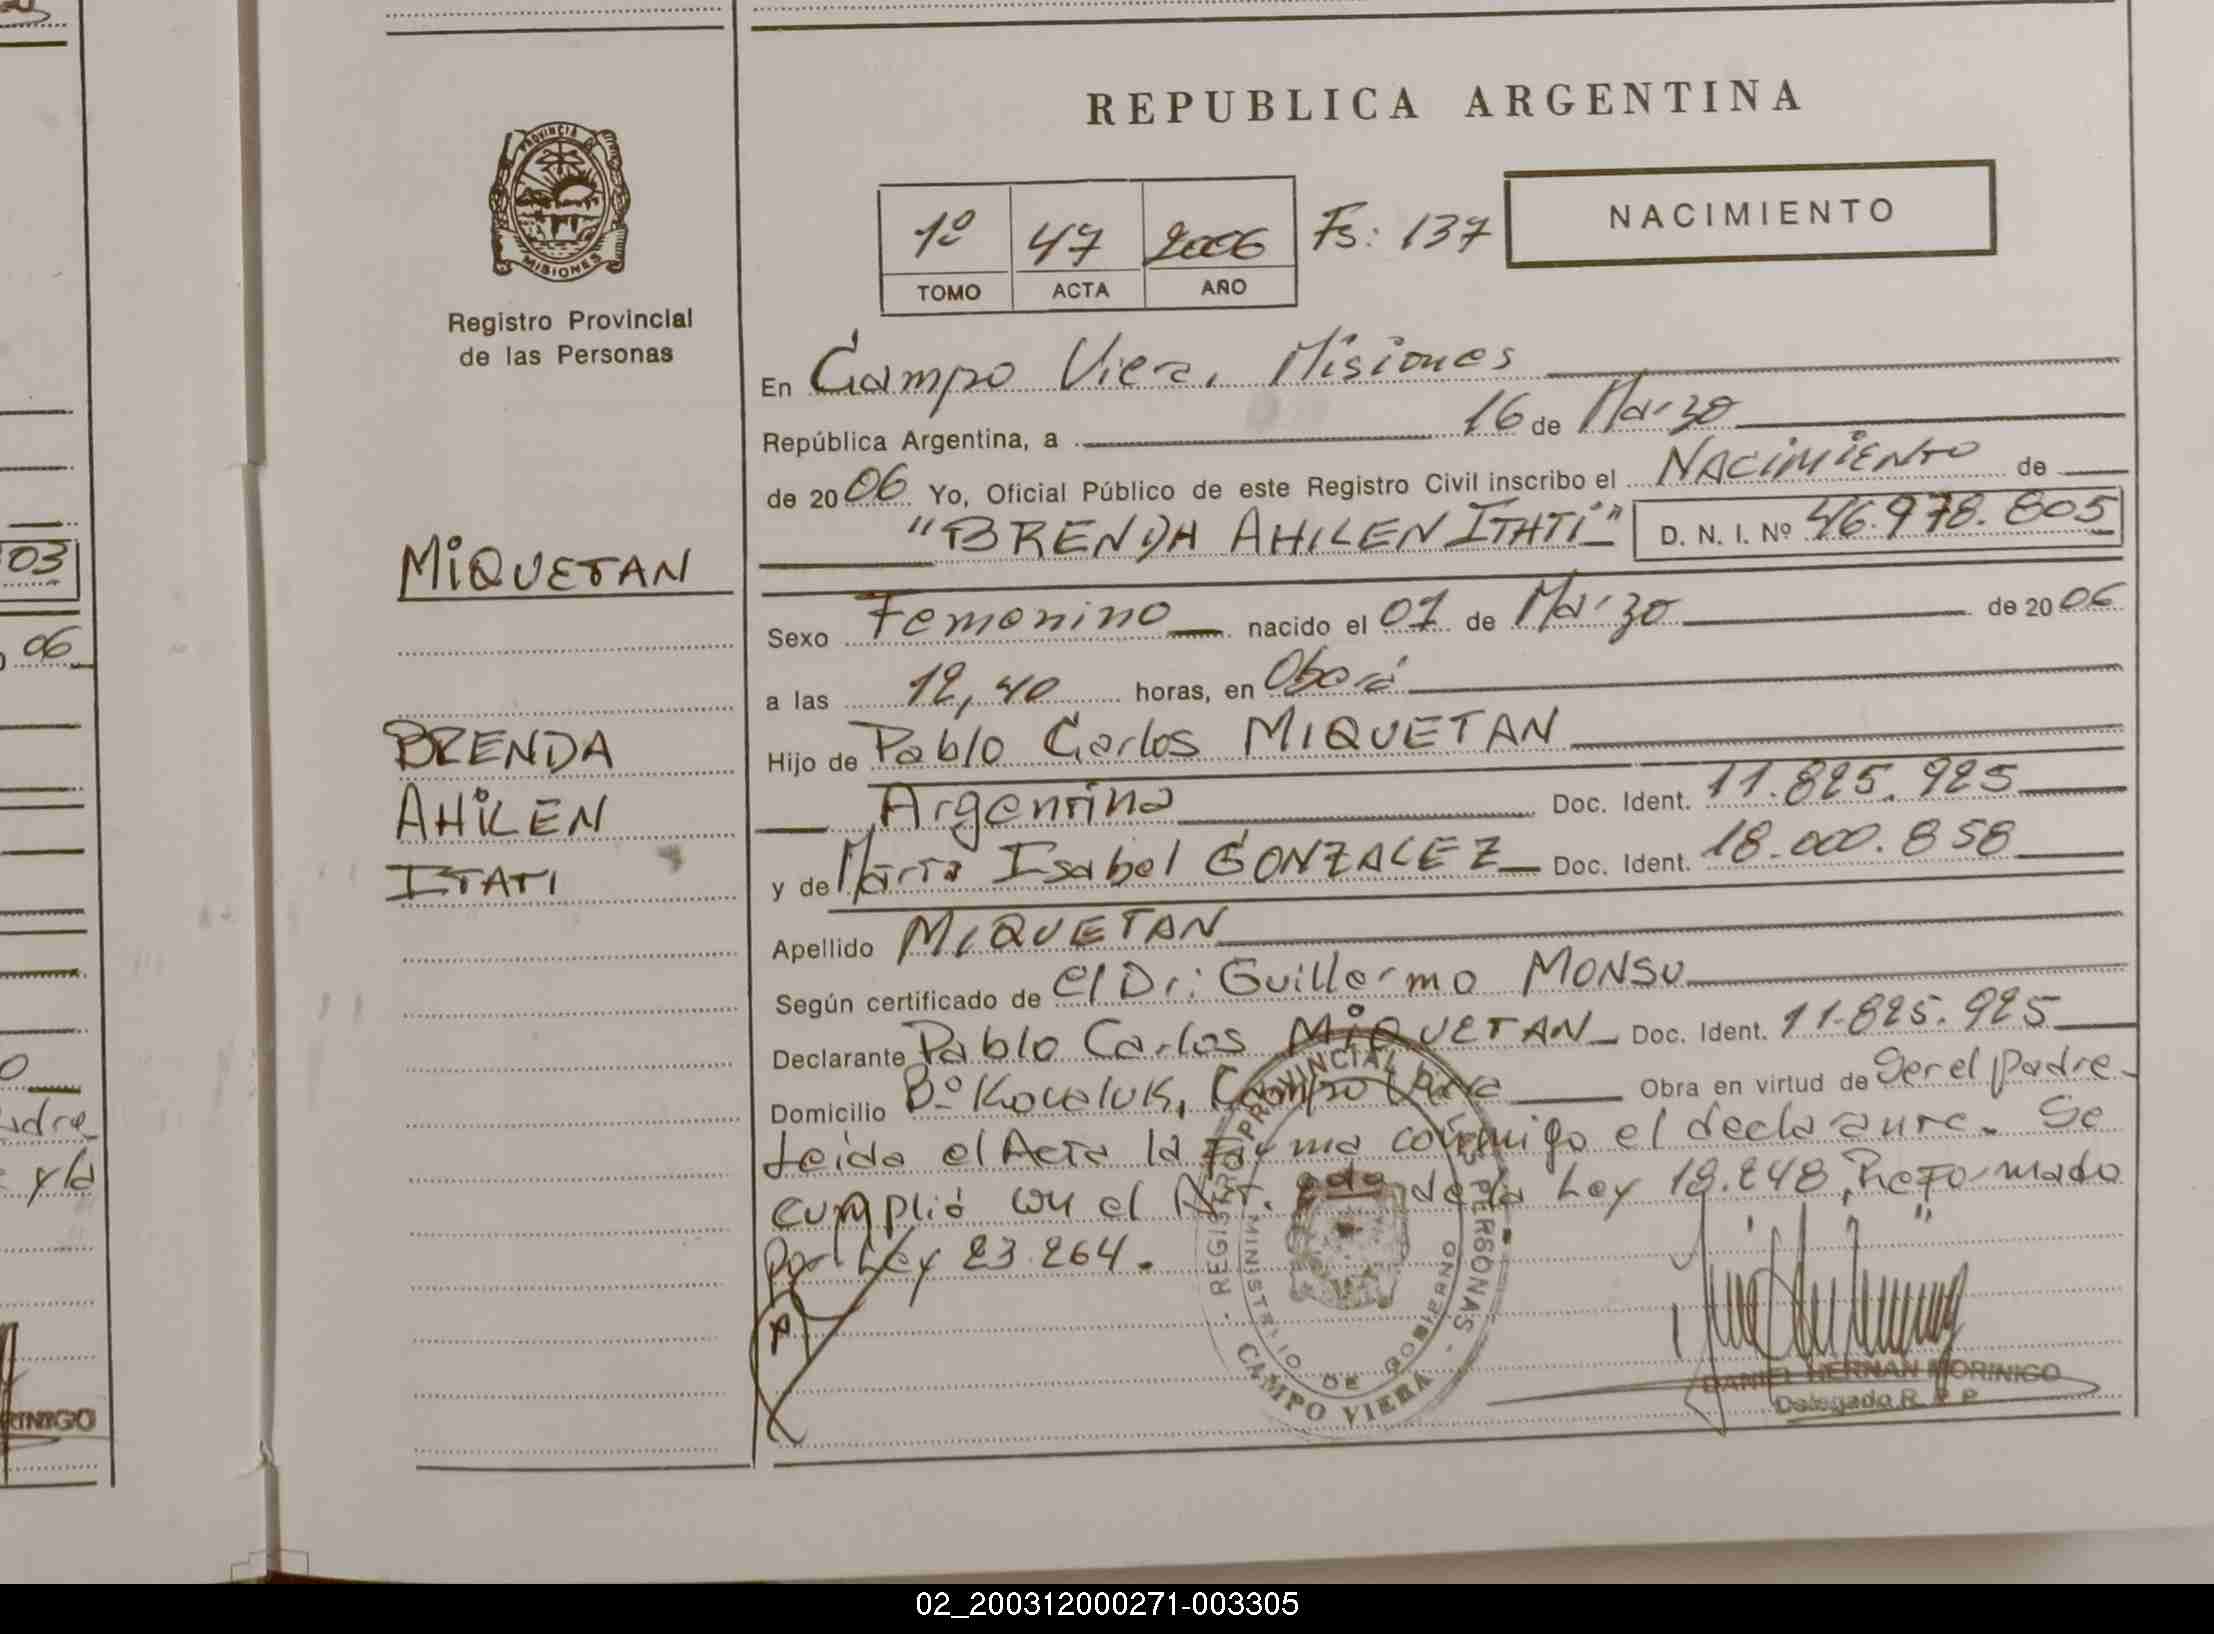 REPUBLICA ARGENTINA
PROVINCIA DE
MISIONES
Registro Provincial
de las Personas
1º 47 2006 Fs: 137
TOMO ACTA AÑO
NACIMIENTO
En Campo Viera, Misiones
República Argentina, a 16 de Marzo
de 2006 Yo, Oficial Público de este Registro Civil inscribo el NACIMIENTO de
"BRENDA AHILEN ITATI" D. N. I. Nº 46.978.805
MIQUETAN
Sexo Femenino nacido el 01 de Marzo de 2006
a las 12,40 horas, en Oberá
BRENDA
AHILEN
ITATI
Hijo de Pablo Carlos MIQUETAN
Argentina Doc. Ident. 11.825.925
y de María Isabel GONZALEZ Doc. Ident. 18.000.858
Apellido MIQUETAN
Según certificado de el Dr: Guillermo MONSU
Declarante Pablo Carlos MIQUETAN Doc. Ident. 11.825.925
Domicilio Bº Koveluk, Campo Viera Obra en virtud de ser el padre.
Leida el Acta la Firma conmigo el declarante. Se
cumplió con el Art. 2do de la Ley 18.248, Reformado
por Ley 23.264.
REGISTRO PROVINCIAL PERSONAS
MINISTERIO DE GOBIERNO
CAMPO VIERA
DANIEL HERNAN MORINIGO
Delegado R. P. P.
03
06
adre
y la
RINIGO
02_200312000271-003305